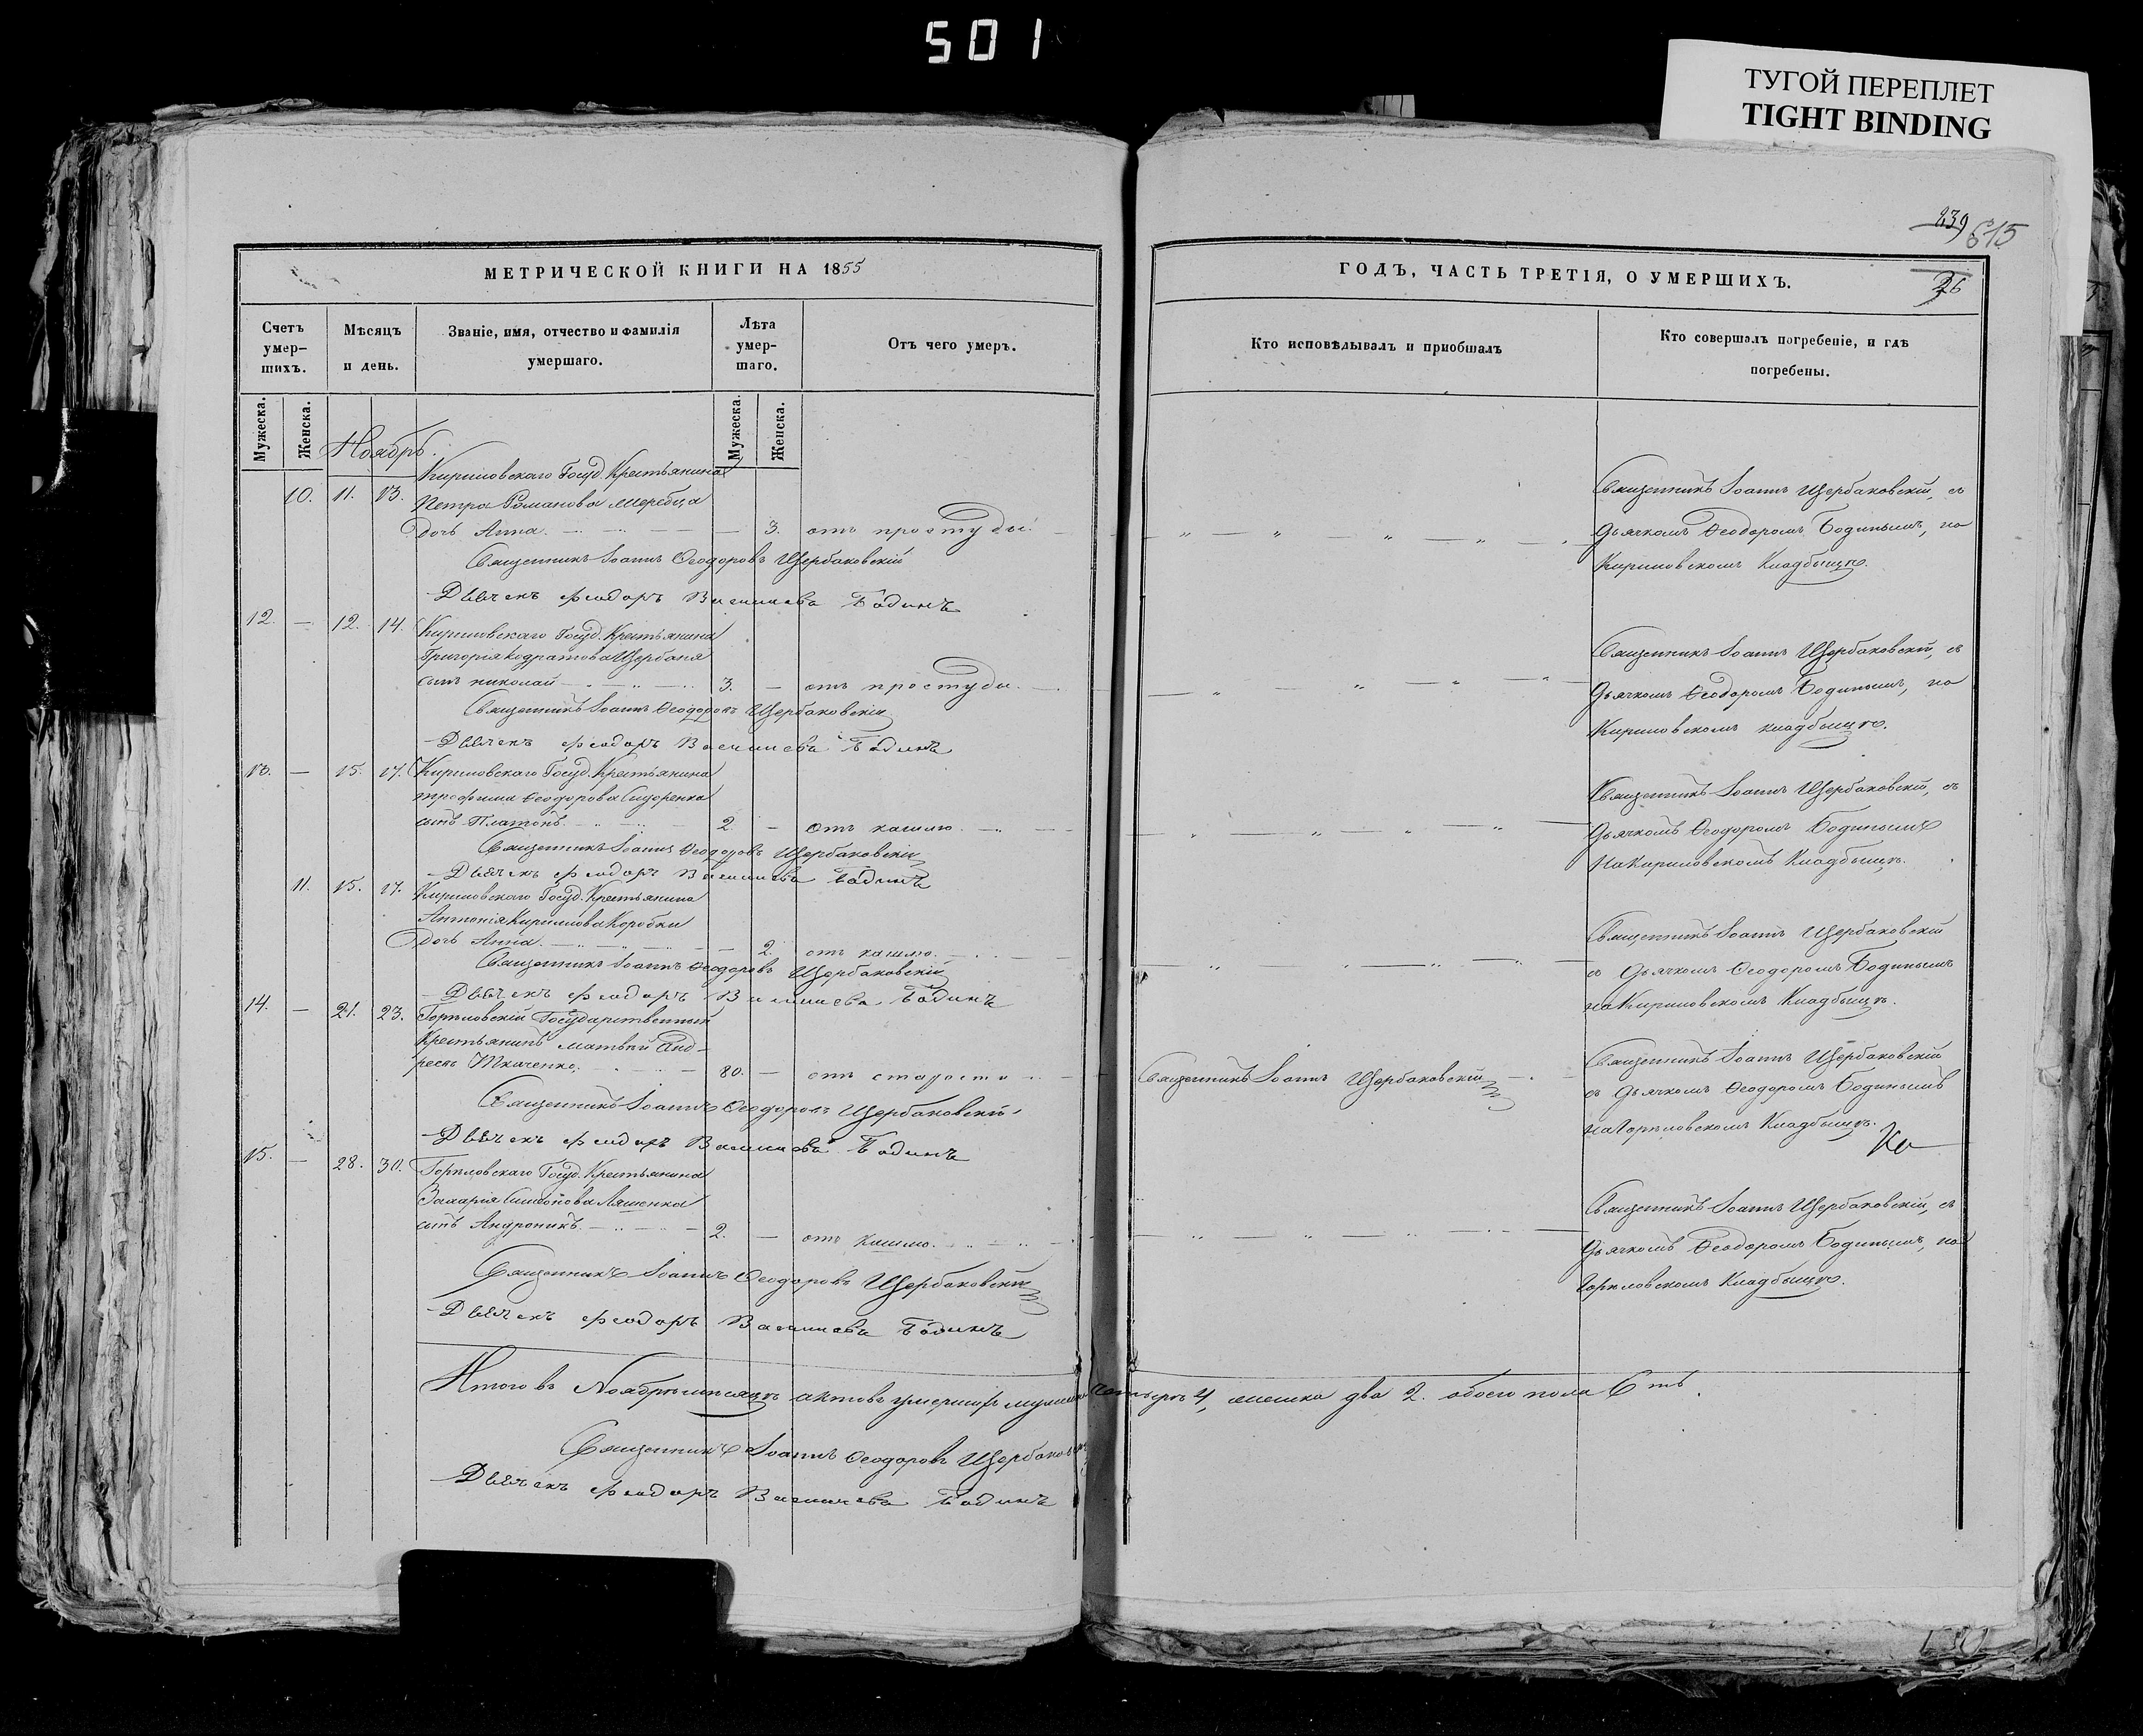 501
ТУГОЙ ПЕРЕПЛЕТ
TIGHT BINDING
239
615
МЕТРИЧЕСКОЙ КНИГИ НА 1855
ГОДЪ, ЧАСТЬ ТРЕТІЯ, О УМЕРШИХЪ.
26
Счетъ умер-шихъ.
Мѣсяцъ и день.
Званіе, имя, отчество и фамилія умершаго.
Лѣта умер-шаго.
Отъ чего умеръ.
Кто исповѣдывалъ и приобщалъ
Кто совершалъ погребеніе, и гдѣ погребены.
Мужеска.
Женска.
Мужеска.
Женска.
Ноябрь.
Кириловскаго Госуд. Крестьянина
10. 11. 13. Петра Романова Жеребца
дочь Анна. 3. отъ простуды.
Священникъ Іоаннъ Ѳеодоровъ Щербаковскій
Дьячекъ Феодоръ Бодинъ
Священникъ Іоаннъ Щербаковскій, съ
Дьячкомъ Ѳеодоромъ Бодинымъ, на
Кириловскомъ Кладбищѣ.
12. — 12. 14. Кириловскаго Госуд. Крестьянина
Григорія Кодратова Щербаня
сынъ Николай 3. — отъ простуды.
Священникъ Іоаннъ Ѳеодоровъ Щербаковскій
Дьячекъ Феодоръ Бодинъ
Священникъ Іоаннъ Щербаковскій, съ
Дьячкомъ Ѳеодоромъ Бодинымъ, на
Кириловскомъ кладбищѣ.
13. — 15. 17. Кириловскаго Госуд. Крестьянина
Трофима Ѳеодорова Сидоренка
сынъ Платонъ. 2. — отъ кашлю.
Священникъ Іоаннъ Ѳеодоровъ Щербаковскій
Дьячекъ Феодоръ Бодинъ
Священникъ Іоаннъ Щербаковскій, съ
Дьячкомъ Ѳеодоромъ Бодинымъ
на Кириловскомъ Кладбищѣ.
11. 15. 17. Кириловскаго Госуд. Крестьянина
Антонія Кирилова Коробки
дочь Анна. — 2. отъ кашлю.
Священникъ Іоаннъ Ѳеодоровъ Щербаковскій
Дьячекъ Феодоръ Бодинъ
Священникъ Іоаннъ Щербаковскій
съ Дьячкомъ Ѳеодоромъ Бодинымъ
на Кириловскомъ Кладбищѣ.
14. — 21. 23. Горѣловскій Государственный
Крестьянинъ Матвѣй Анд-
реевъ Ткаченко. 80. — отъ старости
Священникъ Іоаннъ Ѳеодоровъ Щербаковскій
Дьячекъ Феодоръ Бодинъ
Священникъ Іоаннъ Щербаковскій
Священникъ Іоаннъ Щербаковскій
съ Дьячкомъ Ѳеодоромъ Бодинымъ
на Горѣловскомъ Кладбищѣ.
15. — 28. 30. Горѣловскаго Госуд. Крестьянина
Захарія Симонова Ляшенка
сынъ Андроникъ. 2. — отъ кашлю.
Священникъ Іоаннъ Ѳеодоровъ Щербаковскій
Дьячекъ Феодоръ Бодинъ
Священникъ Іоаннъ Щербаковскій, съ
Дьячкомъ Ѳеодоромъ Бодинымъ, на
Горѣловскомъ Кладбищѣ.
Итого въ Ноябрѣ мѣсяцѣ актовъ умершихъ 4, женска два 2. обоего пола 6ть.
Священникъ Іоаннъ Ѳеодоровъ
Дьячекъ Феодоръ Бодинъ